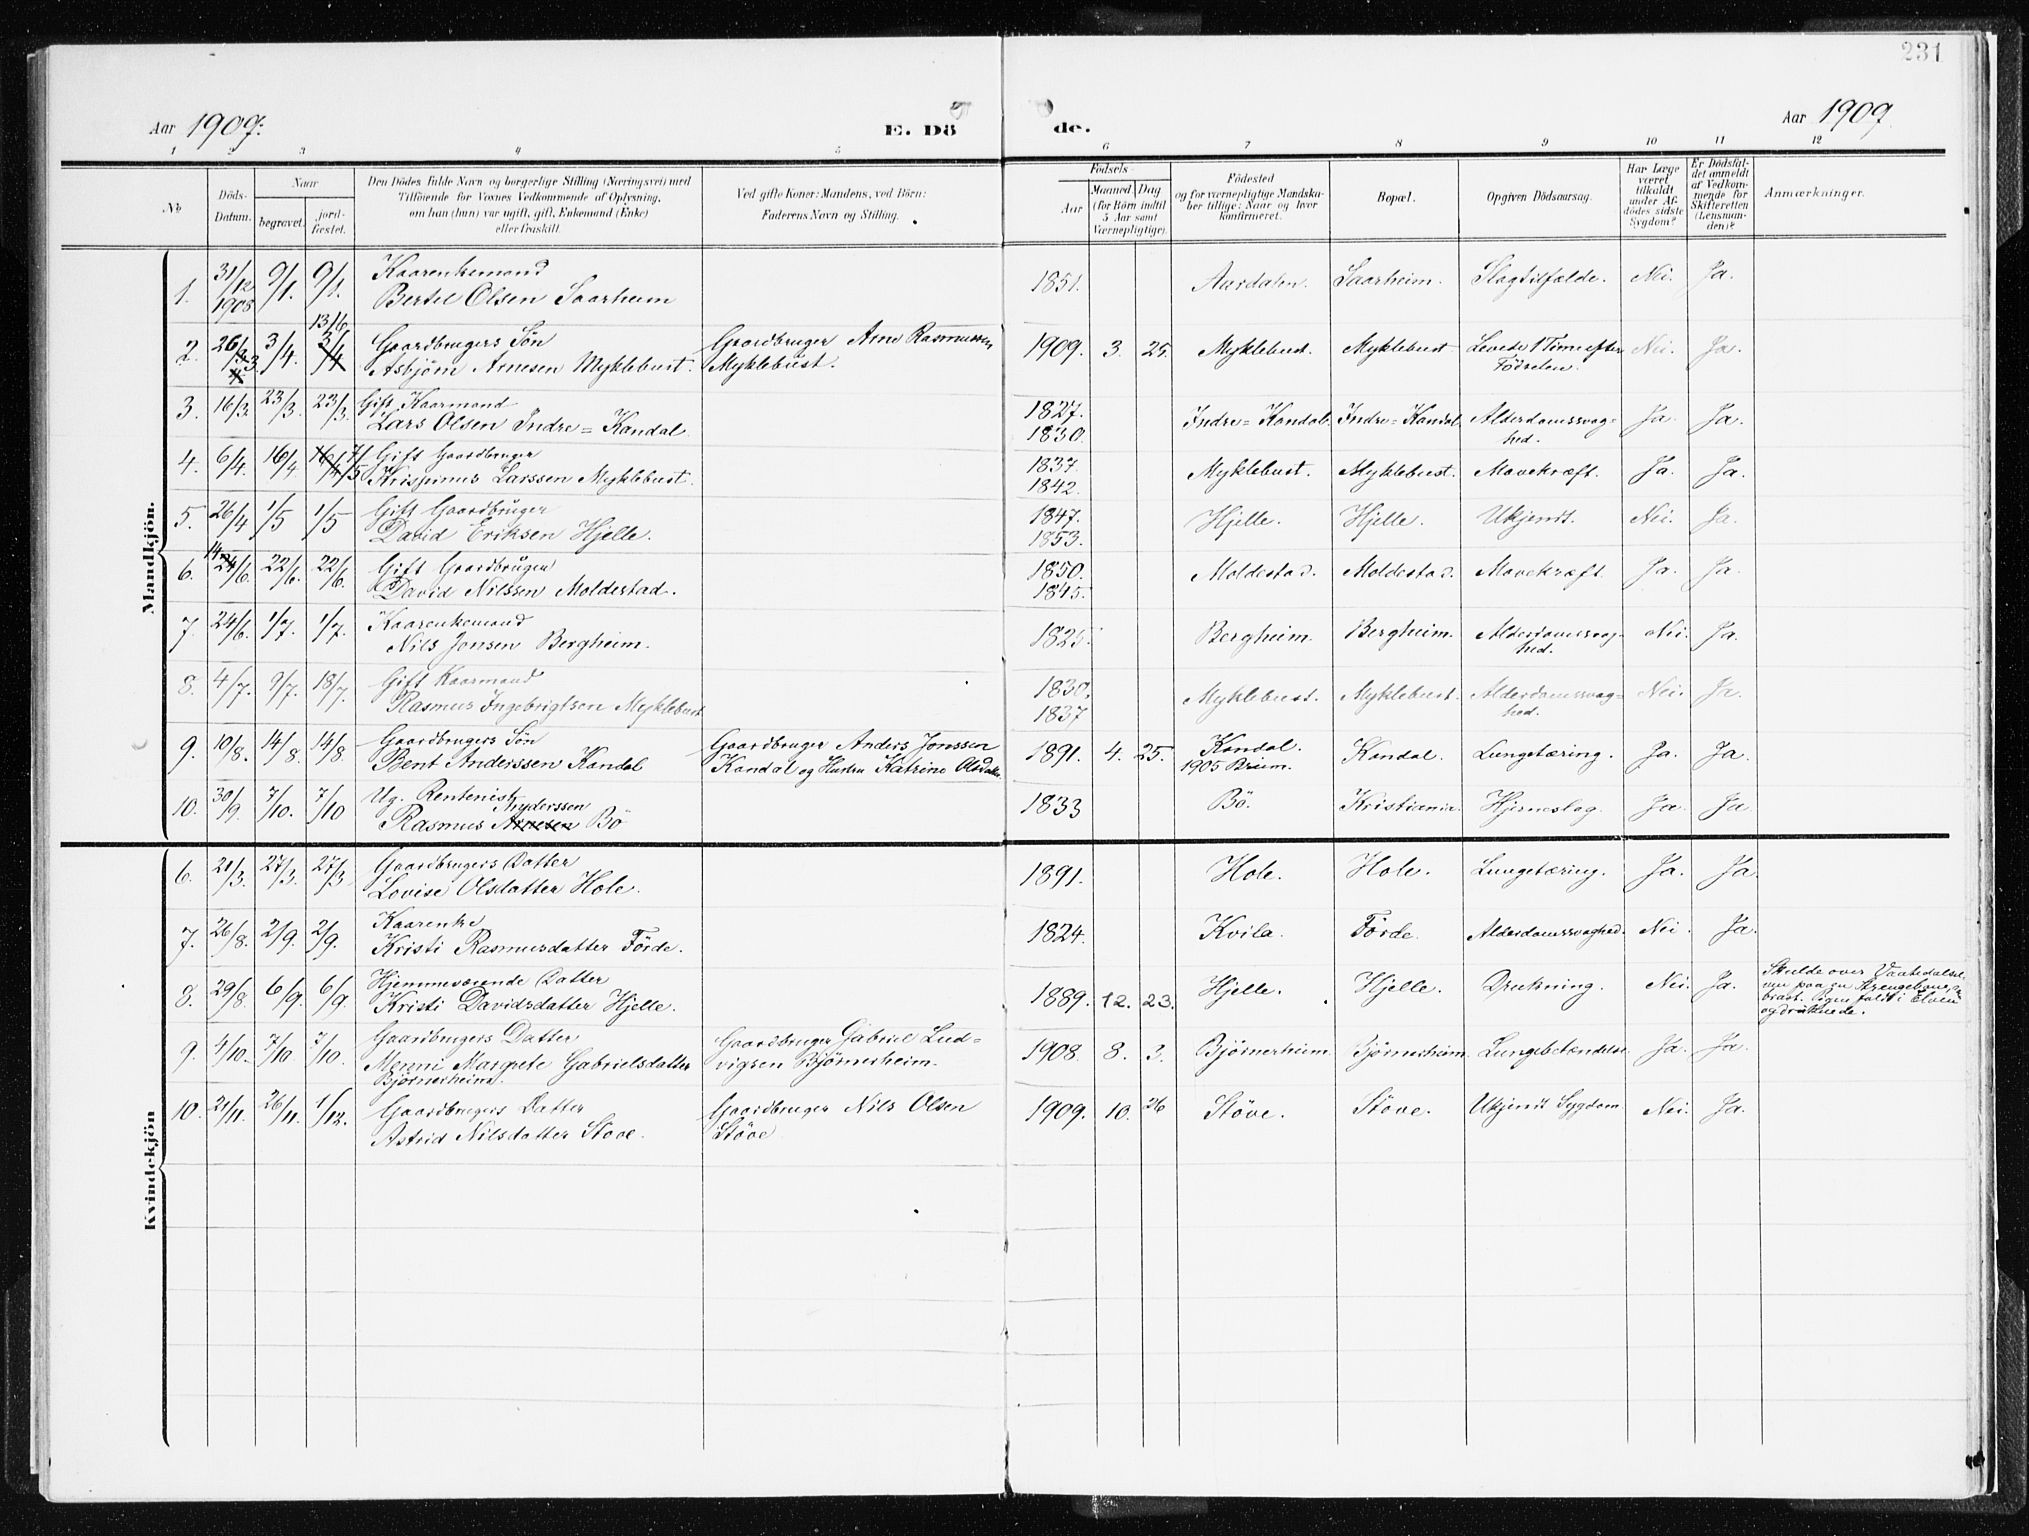 231
Aar 1909. E. Dö de. Aar 1909
1 2 3 4 5 6 7 8 9 10 11 12
№
Döds-Datum.
Naar
begravet.
jord-fæstet.
Den Dödes fulde Navn og borgerlige Stilling (Næringsvei) med
Tilföiende for Voxnes Vedkommende af Oplysning,
om han (hun) var ugift, gift, Enkemand (Enke)
eller fraskilt.
Ved gifte Koner: Mandens, ved Börn:
Faderens Navn og Stilling.
Födsels-
Aar
Maaned Dag
(for Börn indtil
5 Aar samt
Værnepligtige).
Födested
og for værnepligtige Mandska-
ber tillige: Naar og hvor
konfirmeret.
Bopæl.
Opgiven Dödsaarsag.
Har Læge
været
tilkaldt
under Af-
dödes sidste
Sygdom?
Er Dödsfal-
det anmeldt
af Vedkom-
mende for
Skifteretten
(Lensman-
den)?
Anmærkninger.
Mandkjön.
1. 31/12 1908 9/1. 9/1. Kaarenkemand
Bertel Olsen Saarheim 1851. Aardalen. Saarheim. Slagtilfælde. Nei. Ja.
2. 26/3. 3/4. 13/6 3/4 Gaardbrugers Søn
Asbjörn Arnesen Myklebust. Gaardbruger Arne Rasmussen
Myklebust. 1909. 3. 25. Myklebust. Myklebust. Levede 1 Time efter
Födselen. Nei. Ja.
3. 16/3. 23/3. 23/3. Gift Kaarmand
Lars Olsen Indre=Kandal. 1827. 1830. Indre=Kandal. Indre=Kandal. Alderdomssvag=
hed. Ja. Ja.
4. 6/4. 16/4 16/4 7/5 Gift Gaardbruger
Krispinus Larssen Myklebust. 1837. 1842. Myklebust. Myklebust. Mavekræft. Ja. Ja.
5. 26/4 1/5 1/5 Gift Gaardbruger
David Eriksen Hjelle. 1847. 1853. Hjelle. Hjelle. Ukjendt. Nei. Ja.
6. 14 24/6. 22/6. 22/6. Gift Gaardbruger
David Nilssen Moldestad. 1850. 1845. Moldestad. Moldestad. Mavekræft. Ja. Ja.
7. 24/6. 1/7. 1/7. Kaarenkemand
Nils Jonsen Bergheim. 1825. Bergheim. Bergheim. Alderdomssvag=
hed. Nei. Ja.
8. 4/7. 9/7. 18/7. Gift Kaarmand
Rasmus Ingebrigtsen Myklebust 1830. 1837 Myklebust. Myklebust. Alderdomssvag=
hed. Nei. Ja.
9. 10/8. 14/8. 14/8 Gaardbrugers Søn
Bent Anderssen Kandal Gaardbruger Anders Jonssen
Kandal og Hustru Katrine Olsdatter. 1891. 4. 25. Kandal.
1905 Breim. Kandal. Lungetæring. Ja. Ja.
10. 30/9. 7/10. 7/10 Ug. Rentenist
Rasmus Arnesen Anderssen Bö 1833 Bö. Kristiania. Hjerneslag. Ja Ja
Kvindekjön
6. 21/3. 27/3. 27/3 Gaardbrugers Datter
Lovise Olsdatter Hole. 1891. Hole. Hole. Lungetæring. Ja. Ja.
7. 26/8. 2/9. 2/9. Kaarenke
Kristi Rasmusdatter Förde. 1824. Kvila. Förde. Alderdomssvaghed. Nei. Ja.
8. 29/8. 6/9. 6/9. Hjemmeværende Datter
Kristi Davidsdatter Hjelle. 1889. 12. 23. Hjelle. Hjelle. Drukning. Nei. Ja. Skulde over Vaatedalsel-
ven paa en Strengebro,
brast. Pigen faldt i Elven
og druknede.
9. 4/10. 7/10 7/10. Gaardbrugers Datter
Menni Margrete Gabrielsdatter
Bjørnerheim. Gaardbruger Gabriel Lud=
vigsen Bjørnerheim. 1908. 8. 3. Bjørnerheim. Bjørnerheim. Lungebetændelse. Ja. Ja.
10. 21/11. 26/11. 1/12. Gaardbrugers Datter
Astrid Nilsdatter Støve. Gaardbruger Nils Olsen
Støve 1909. 10. 26 Støve. Støve. Ukjendt Sygdom. Nei. Ja.